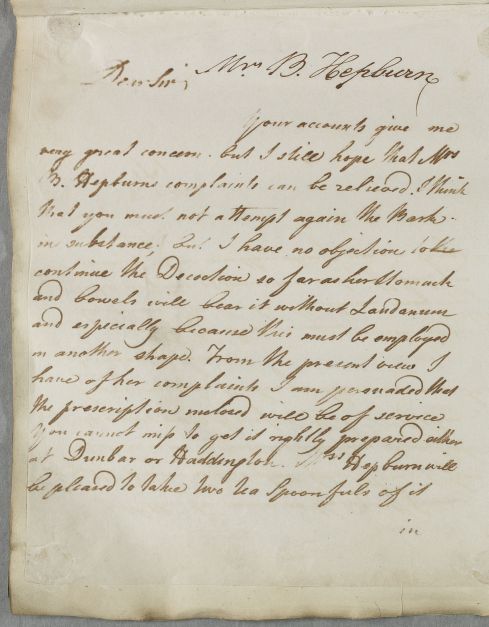 Mrs B. Hepburn
Dear Sir,
Your accounts give me
very great concern. but I still hope that Mrs
B. Hepburns complaints can be relieved. I think
that you must not attempt again the Bark
in substance; but I have no objection to
continue the Decoction so far as her Stomach
and bowels will bear it without Laudanum
and especially because this must be employed
in another shape. From the present view I
have of her complaints I am persuaded that
the prescription inclosed will be of service
You cannot miss to get it rightly prepared either
at Dunbar or Haddington. Mrs Hepburn will
be pleased to take two tea Spoonfuls of it
in